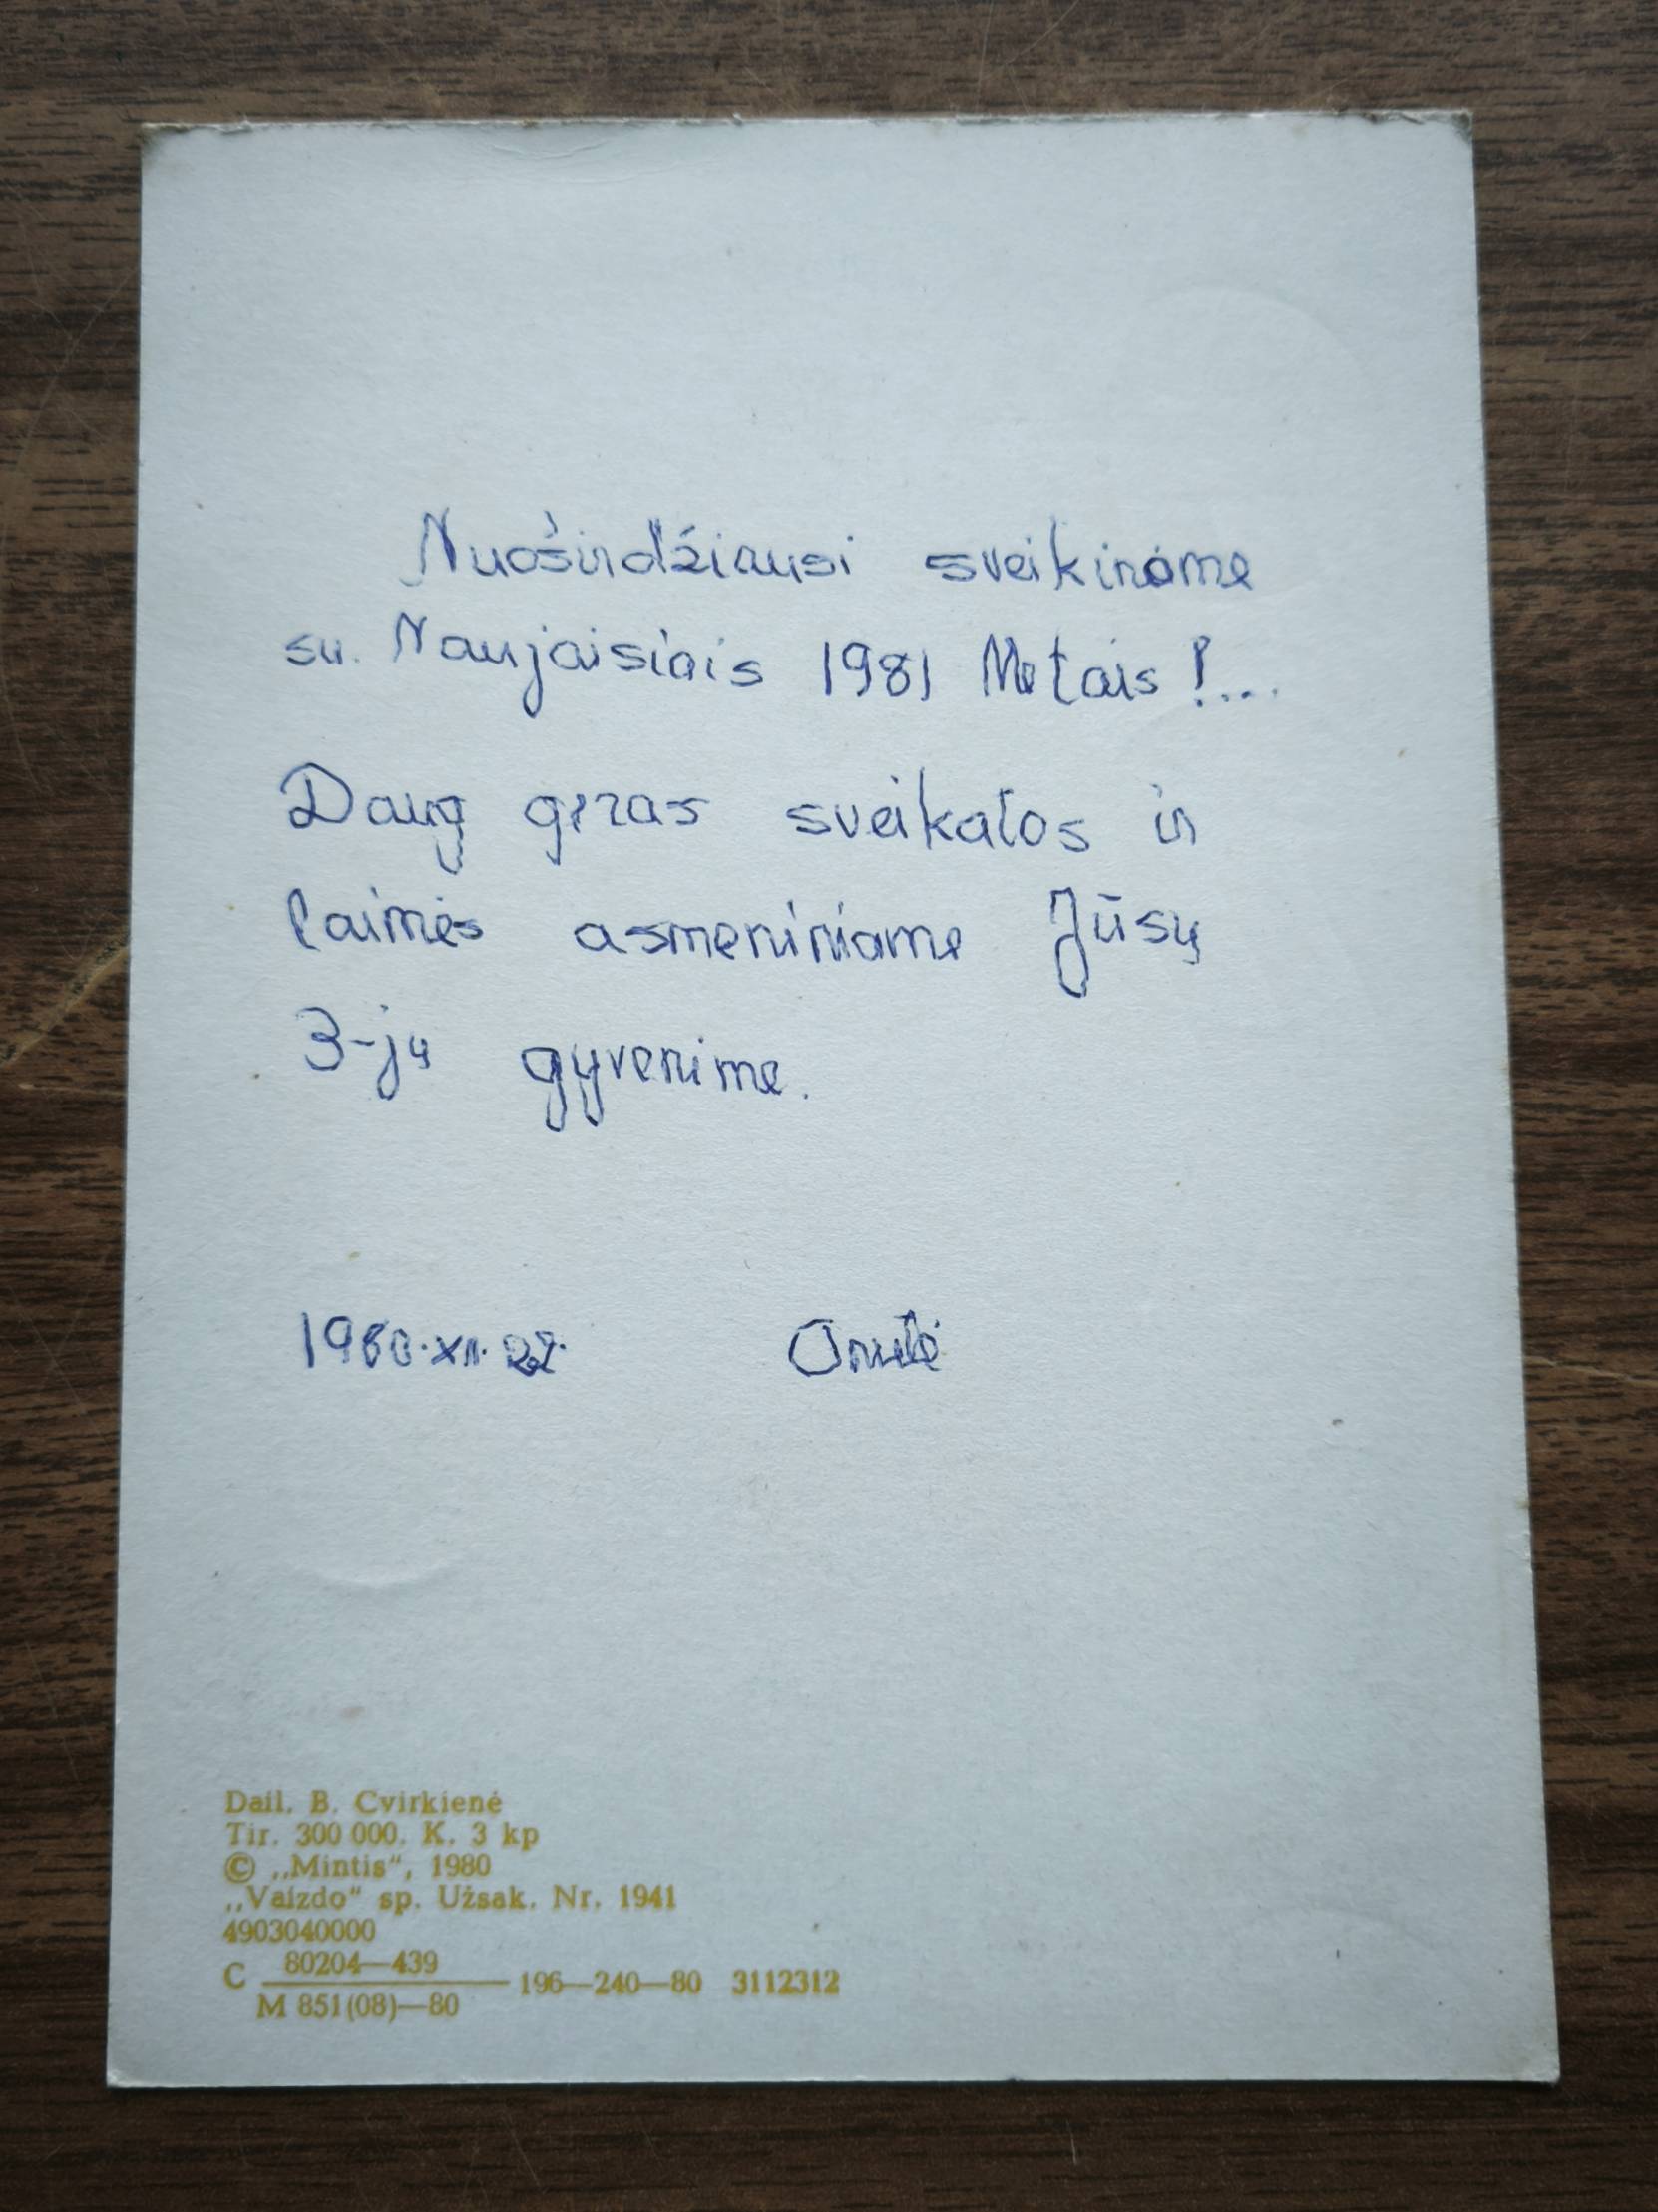 Nuoširdžiausi sveikiname
su Naujaisiais 1981 Metais!...
Daug geras sveikatos ir
laimės asmeniniame Jūsų
3-jų gyvenime.
1980.XII.27. Onutė
Dail. B. Cvirkienė
Tir. 300 000. K. 3 kp
© „Mintis“, 1980
„Vaizdo“ sp. Užsak. Nr. 1941
4903040000
C 80204—439 / M 851(08)—80 196—240—80 3112312